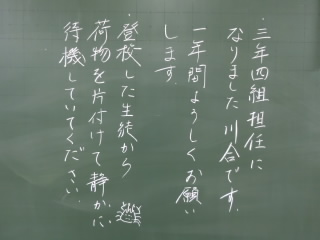 ・三年四組担任に
なりました川合です。
一年間よろしくお願い
します。
・登校した生徒から
荷物を片付けて静かに
待機していてください。